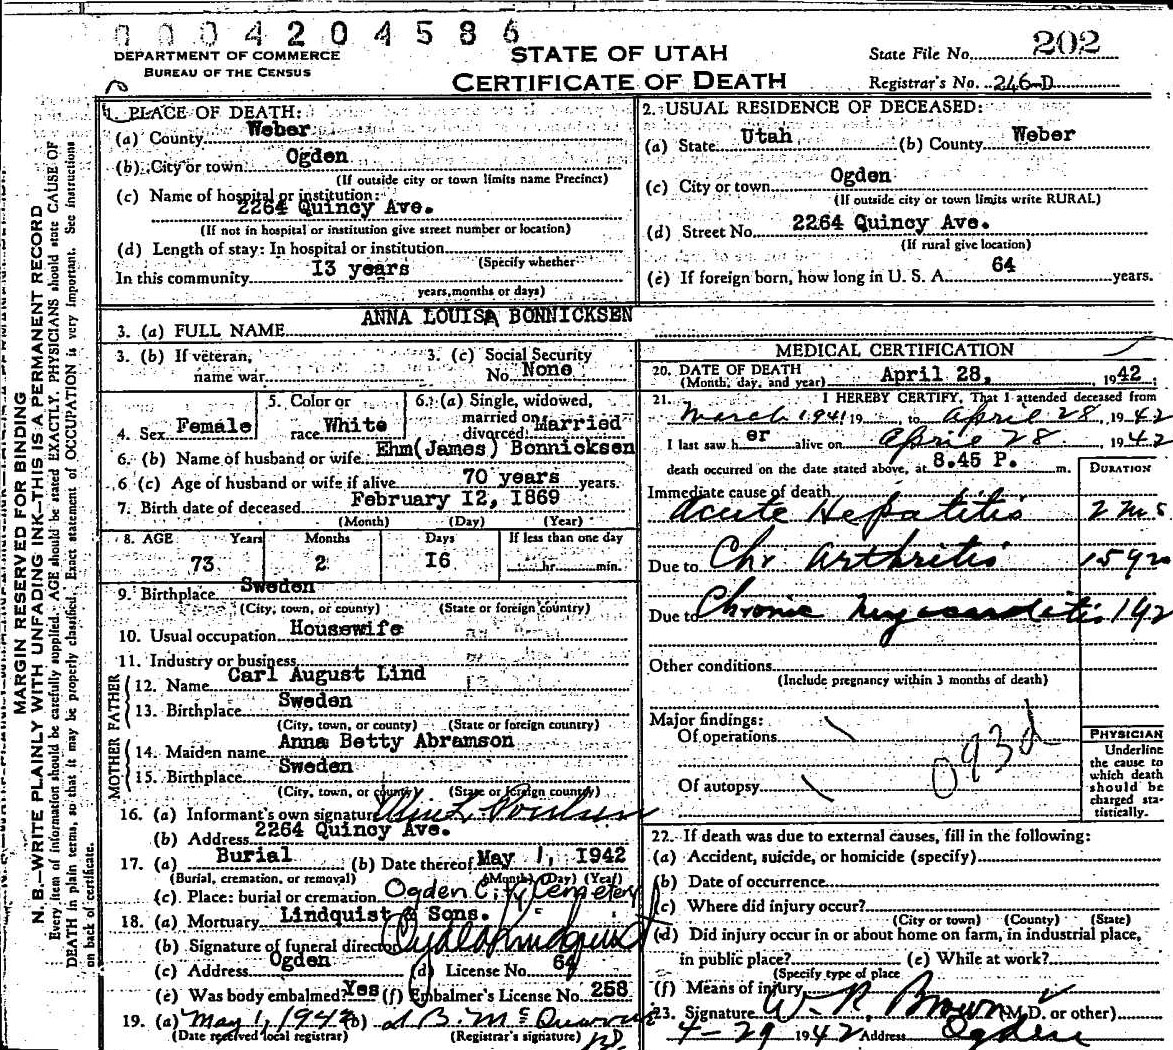 0004204586
DEPARTMENT OF COMMERCE
BUREAU OF THE CENSUS
STATE OF UTAH
CERTIFICATE OF DEATH
State File No. 202
Registrar's No. 246-D
MARGIN RESERVED FOR BINDING
N. B.—WRITE PLAINLY WITH UNFADING INK—THIS IS A PERMANENT RECORD
Every item of information should be carefully supplied. AGE should be stated EXACTLY. PHYSICIANS should state CAUSE OF
DEATH in plain terms, so that it may be properly classified. Exact statement of OCCUPATION is very important. See instructions
on back of certificate.
1. PLACE OF DEATH:
(a) County Weber
(b) City or town Ogden
(If outside city or town limits name Precinct)
(c) Name of hospital or institution:
2264 Quincy Ave.
(If not in hospital or institution give street number or location)
(d) Length of stay: In hospital or institution
(Specify whether
In this community 13 years
years, months or days)
2. USUAL RESIDENCE OF DECEASED:
(a) State Utah (b) County Weber
(c) City or town Ogden
(If outside city or town limits write RURAL)
(d) Street No. 2264 Quincy Ave.
(If rural give location)
(e) If foreign born, how long in U. S. A. 64 years.
3. (a) FULL NAME ANNA LOUISA BONNICKSEN
3. (b) If veteran,
name war
3. (c) Social Security
No. None
4. Sex Female
5. Color or
race White
6. (a) Single, widowed,
married or
divorced Married
6. (b) Name of husband or wife Ehm (James) Bonnicksen
6 (c) Age of husband or wife if alive 70 years years.
7. Birth date of deceased February 12, 1869
(Month) (Day) (Year)
8. AGE Years Months Days If less than one day
73 2 16 hr. min.
9. Birthplace Sweden
(City, town, or county) (State or foreign country)
10. Usual occupation Housewife
11. Industry or business
FATHER
12. Name Carl August Lind
13. Birthplace Sweden
(City, town, or county) (State or foreign country)
MOTHER
14. Maiden name Anna Betty Abramson
15. Birthplace Sweden
(City, town, or county) (State or foreign country)
16. (a) Informant's own signature
(b) Address 2264 Quincy Ave.
17. (a) Burial (b) Date thereof May 1, 1942
(Burial, cremation, or removal) (Month) (Day) (Year)
(c) Place: burial or cremation Ogden City Cemetery
18. (a) Mortuary Lindquist & Sons.
(b) Signature of funeral director
(c) Address Ogden (d) License No. 64
(e) Was body embalmed? Yes (f) Embalmer's License No. 258
19. (a) May 1, 1942 (b)
(Date received local registrar) (Registrar's signature)
MEDICAL CERTIFICATION
20. DATE OF DEATH
(Month, day, and year) April 28, 1942
21. I HEREBY CERTIFY, That I attended deceased from
March 1941 19 to April 28 1942
I last saw her alive on April 28 1942
death occurred on the date stated above, at 8.45 P. m.
DURATION
Immediate cause of death
Acute Hepatitis 2 ms
Due to Chr Arthritis 15 yrs
Due to Chronic Myocarditis 1 yr
Other conditions
(Include pregnancy within 3 months of death)
Major findings:
Of operations
Of autopsy
093d
PHYSICIAN
Underline
the cause to
which death
should be
charged sta-
tistically.
22. If death was due to external causes, fill in the following:
(a) Accident, suicide, or homicide (specify)
(b) Date of occurrence
(c) Where did injury occur?
(City or town) (County) (State)
(d) Did injury occur in or about home on farm, in industrial place,
in public place? (e) While at work?
(Specify type of place
(f) Means of injury
23. Signature W. R. Brown (M.D. or other)
4-29 1942 Address Ogden